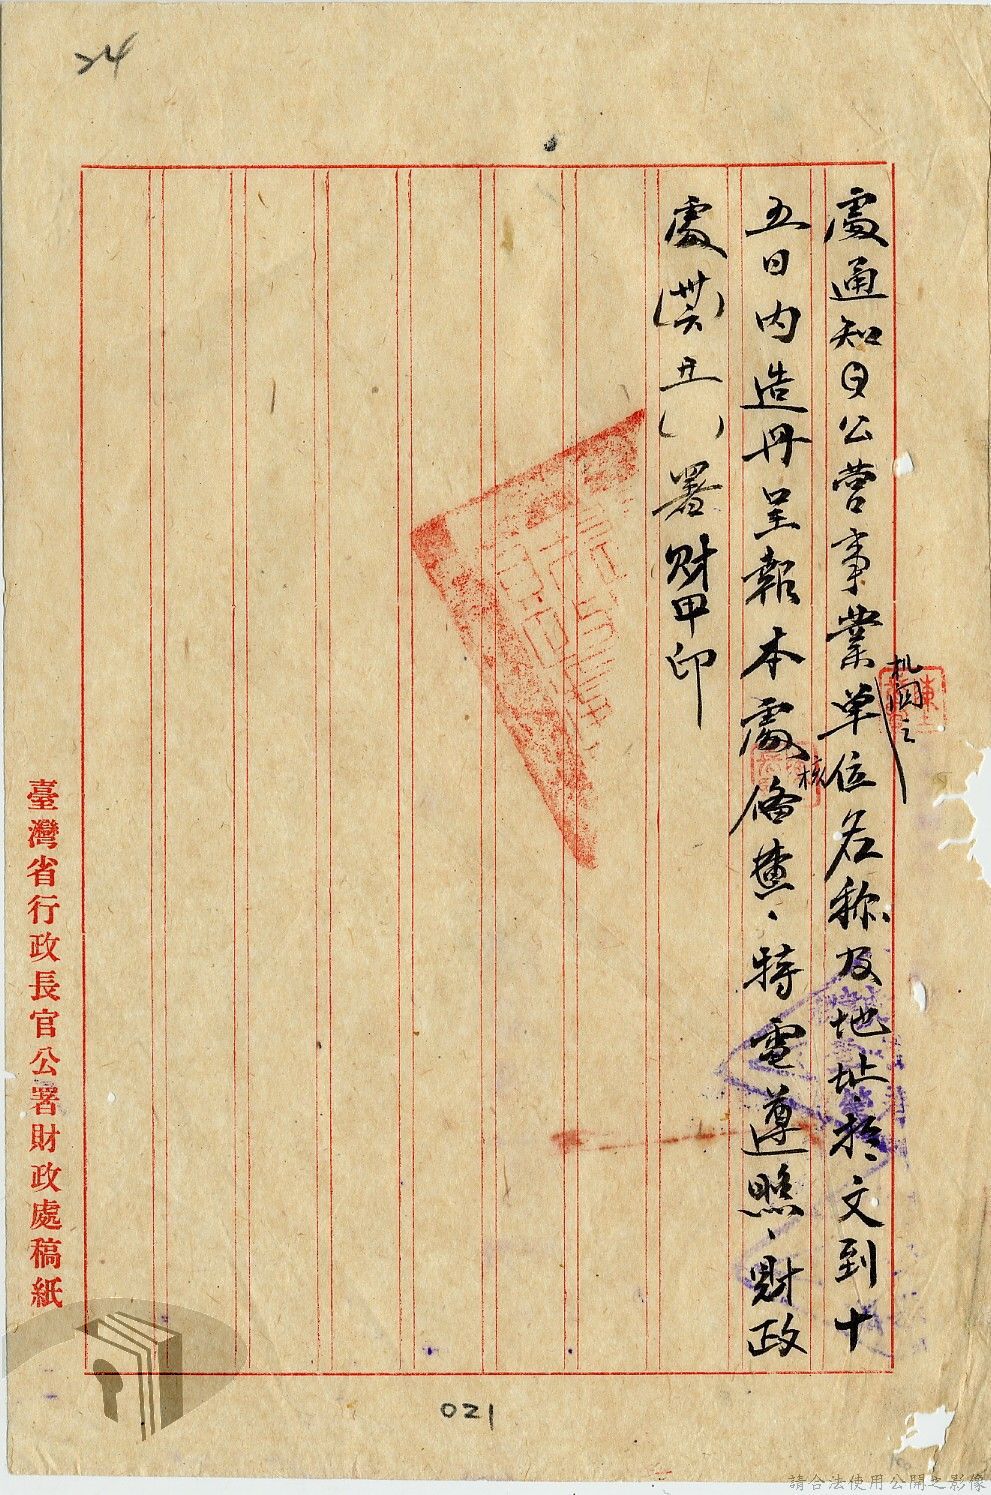 24
處通知日公營事業單位名称及地址於文到十
机関之
五日內造冊呈報本處俻查、特電遵照、財政
核
處(卅六)丑( )署財甲印
臺灣省行政長官公署財政處稿紙
021
請合法使用公開之影像